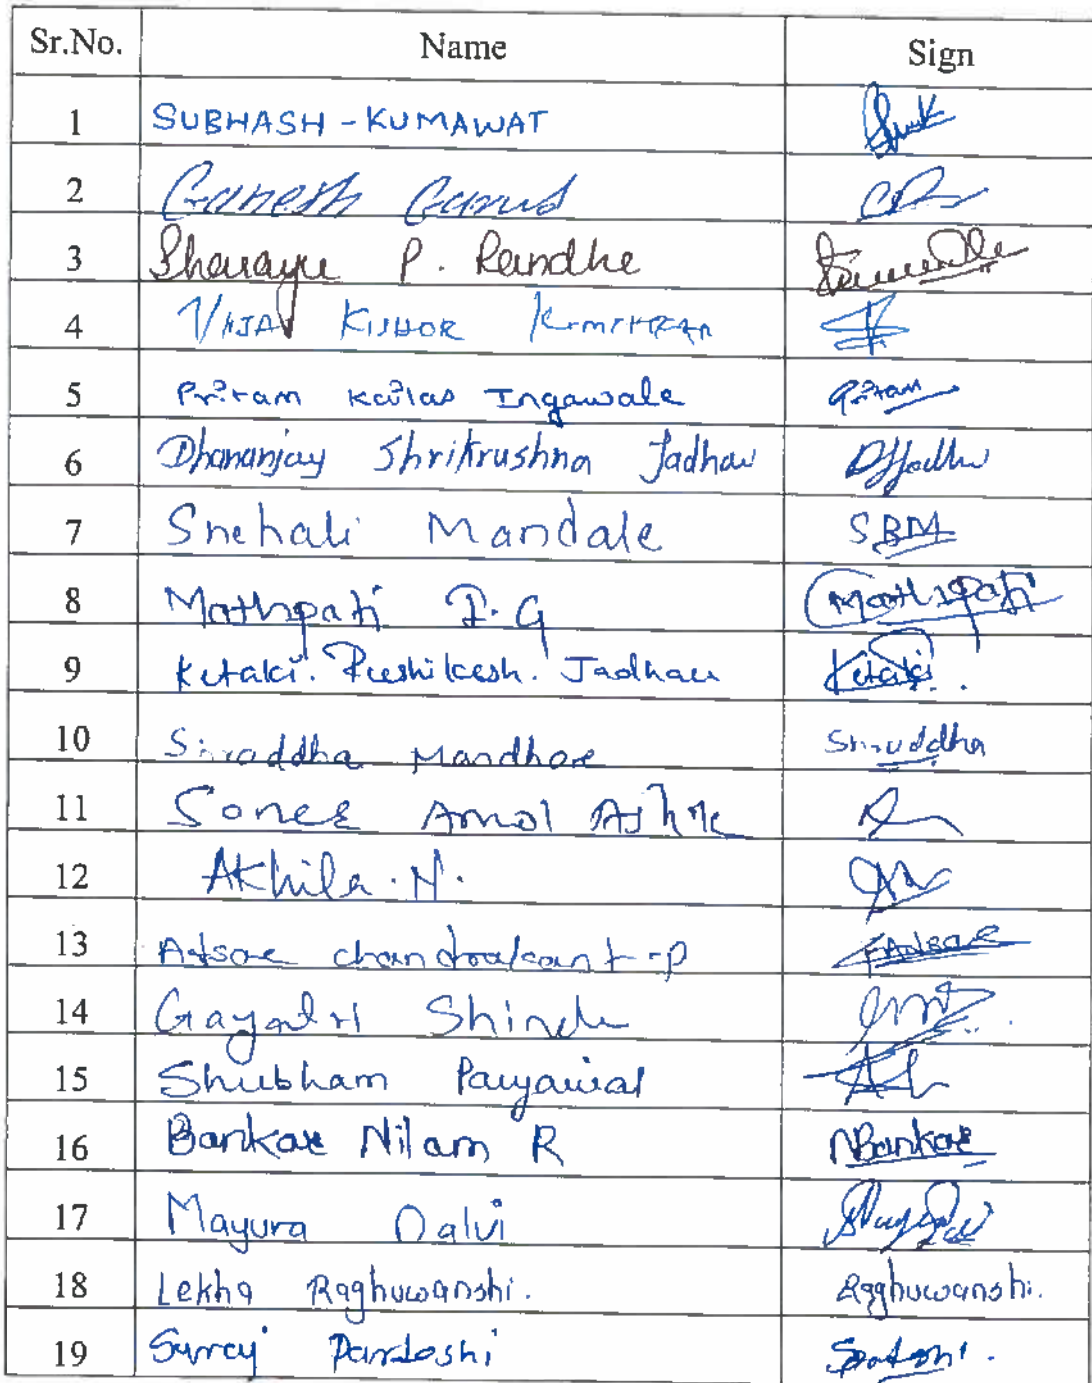 Sr.No. Name Sign
1 SUBHASH - KUMAWAT
2 Ganesh Garud
3 Sharayu P. Randhe
4 VIJAY KISHOR
5 Pritam Kailas Ingawale Pritam
6 Dhananjay Shrikrushna Jadhav
7 Snehali Mandale SBM
8 Mathpati P.G Mathpati
9 Ketaki. Rushikesh. Jadhav Ketaki
10 Shraddha Mandhare Shraddha
11 Amol
12 Akhila . N.
13 Adsare chandrakant - p Adsare
14 Gayatri Shinde
15 Shubham
16 Bankar Nilam R NBankar
17 Mayura Dalvi
18 Lekha Raghuwanshi. Raghuwanshi.
19 Suraj Pardeshi